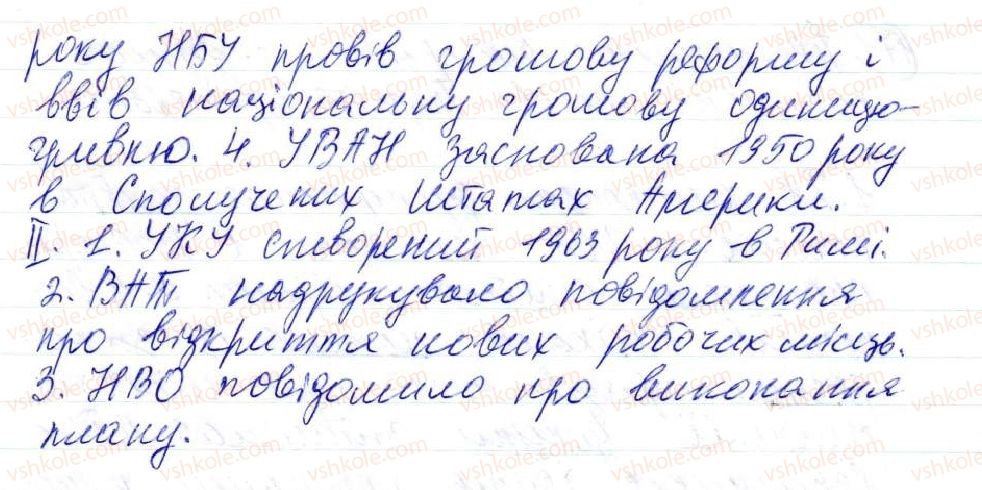 року НБУ провів грошову реформу і
ввів національну грошову одиницю-
гривню. 4. УВАН заснована 1950 року
в Сполучених Штатах Америки.
II. 1. УКУ створений 1963 року в Римі.
2. ВАТ надрукувало повідомлення
про відкриття нових робочих місць.
3. НВО повідомило про виконання
плану.